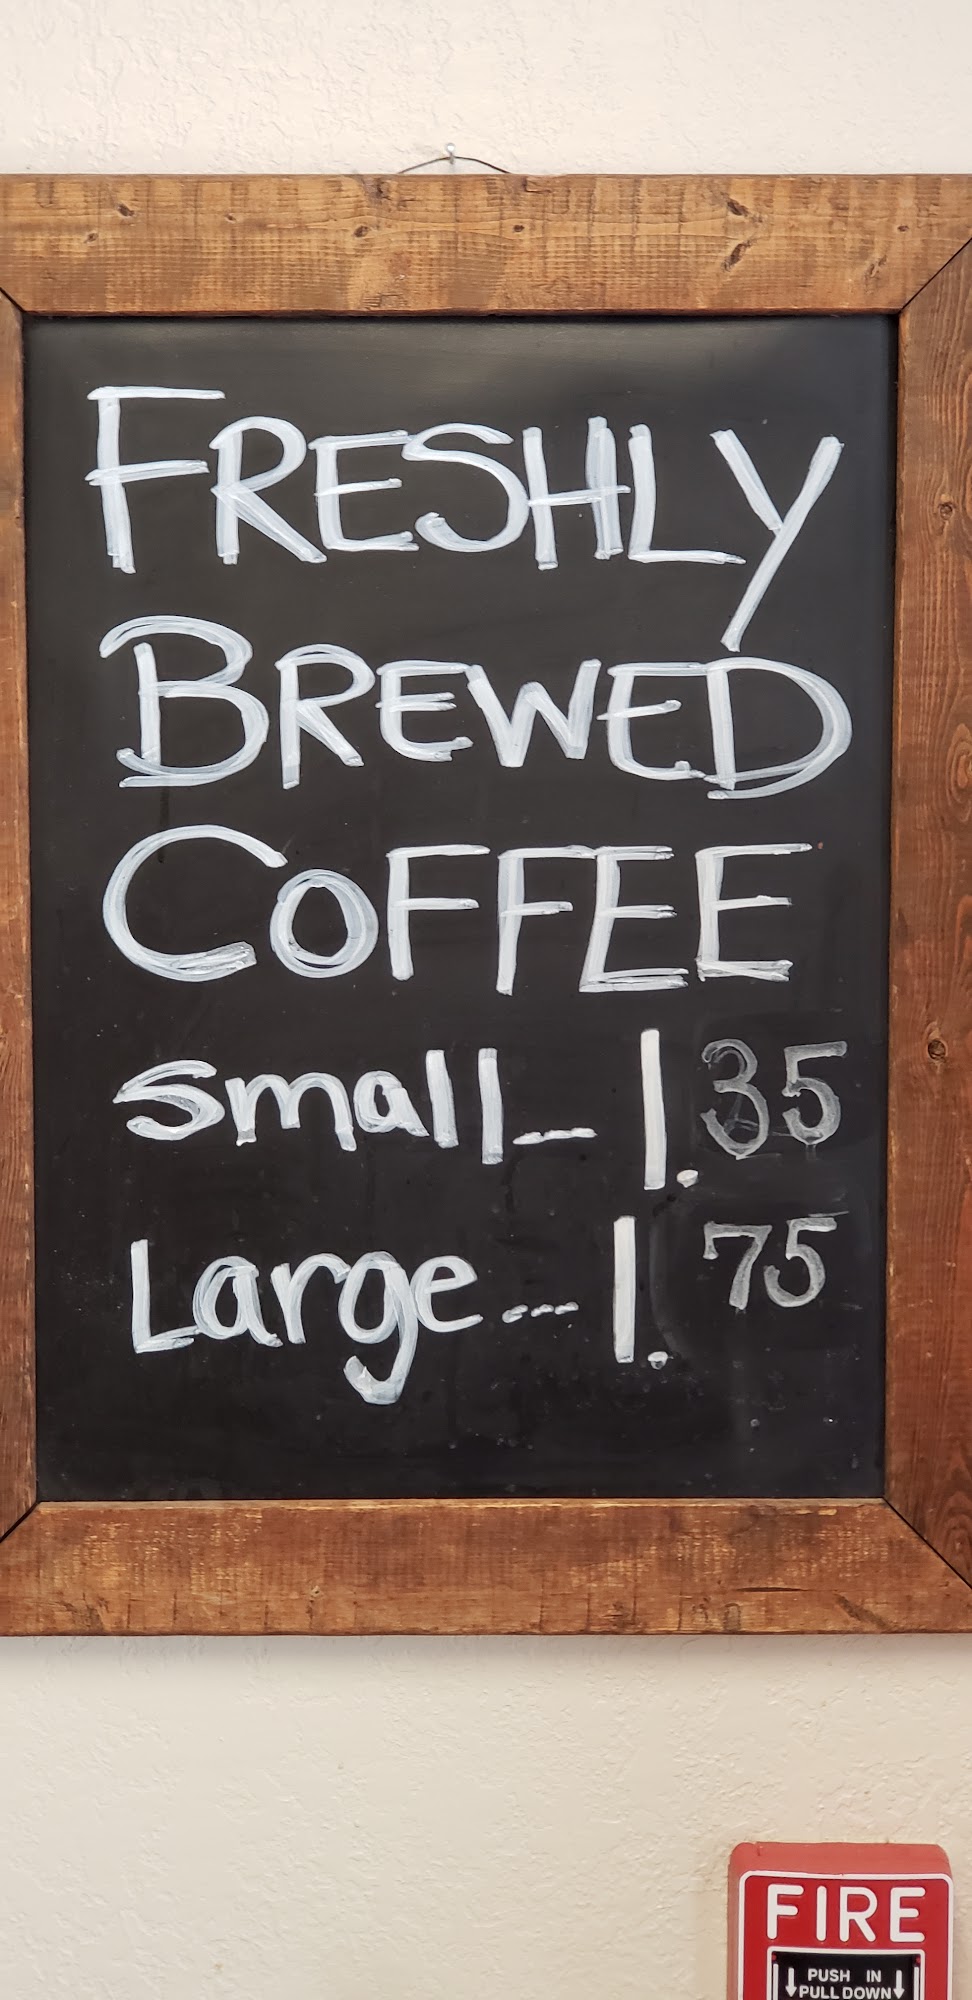 FRESHLY
BREWED
COFFEE
Small--- 1.35
Large--- 1.75
FIRE
PUSH IN
PULL DOWN